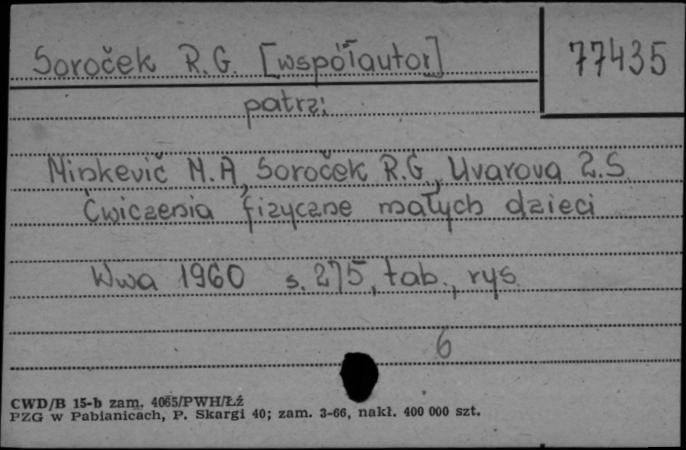 Soroček R.G. [współautor]
77435
patrz:
Minkevič M.A, Soroček R.G, Uvarova Z.S.
Ćwiczenia fizyczne małych dzieci
Wwa 1960 s. 275, tab., rys.
6
CWD/B 15-b zam. 4065/PWH/Łź
PZG w Pabianicach, P. Skargi 40; zam. 3-66, nakł. 400 000 szt.